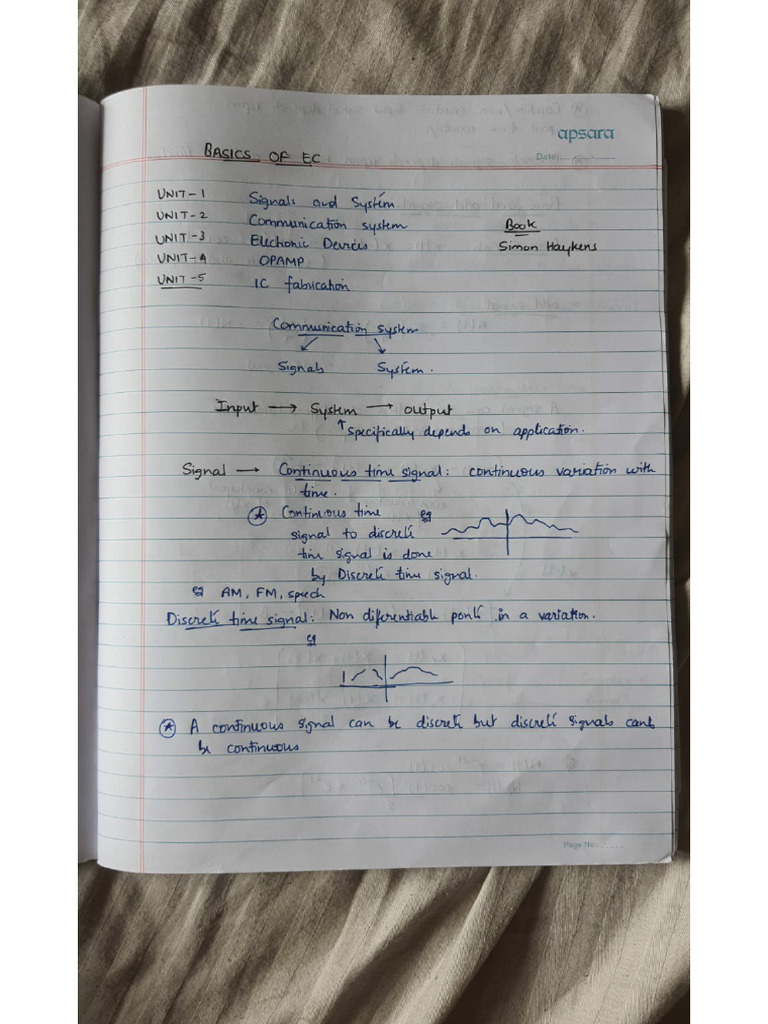 apsara
Date:
BASICS OF EC
UNIT-1 Signals and System
UNIT-2 Communication system
Book
UNIT-3 Electronic Devices
Simon Haykens
UNIT-4 OPAMP
UNIT-5 IC fabrication
Communication system
Signals System.
Input → System → output
↑ specifically depends on application.
Signal → Continuous time signal: continuous variation with
time.
* Continuous time eg
signal to discrete
time signal is done
by Discrete time signal.
eg AM, FM, speech
Discrete time signal: Non diferentiable ponts in a variation.
eg
* A continuous signal can be discrete but discrete signals cant
be continuous
Page No.